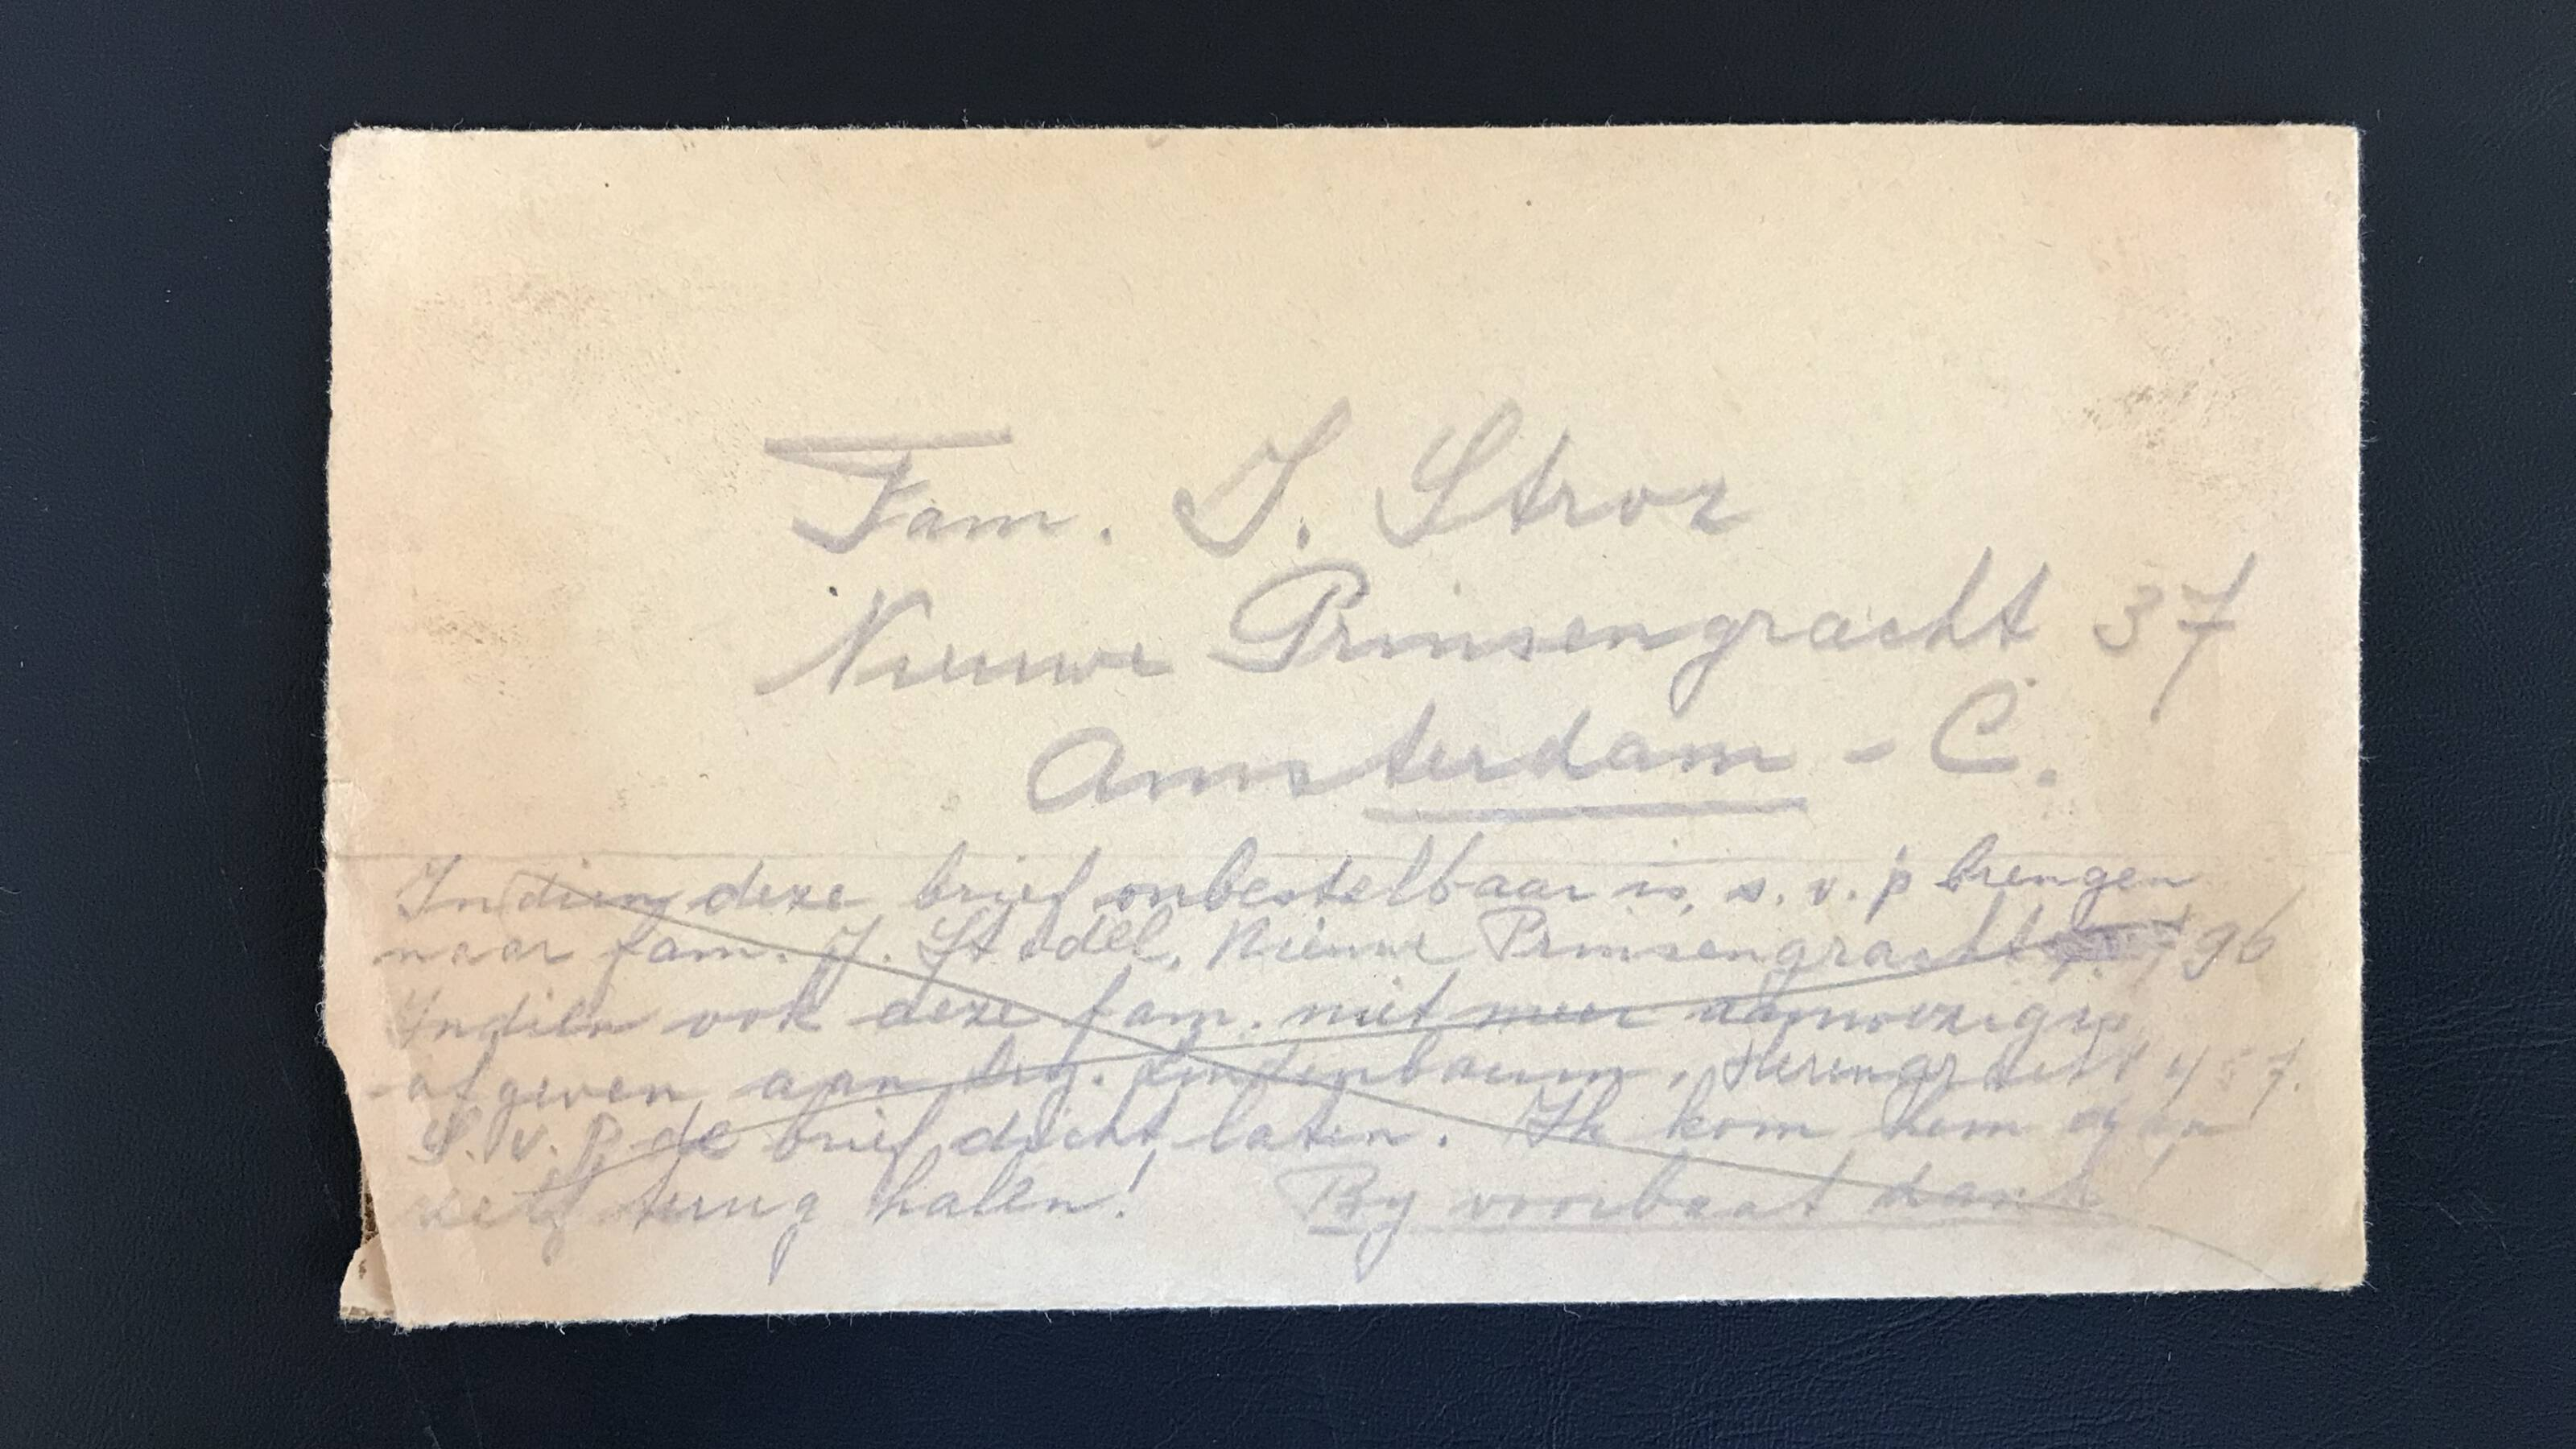 Fam. J. Stroz
Nieuwe Prinsengracht 37
Amsterdam - C.
Indien deze brief onbestelbaar is, s.v.p brengen
naar fam. J. Stodel, Nieuwe Prinsengracht 96
Indien ook deze fam. niet meer aanwezig is
afgeven aan Lindenbaum, Herengracht 457.
S.v.P. de brief dicht laten. Ik kom hem
zelf terug halen! By voorbaat dank!